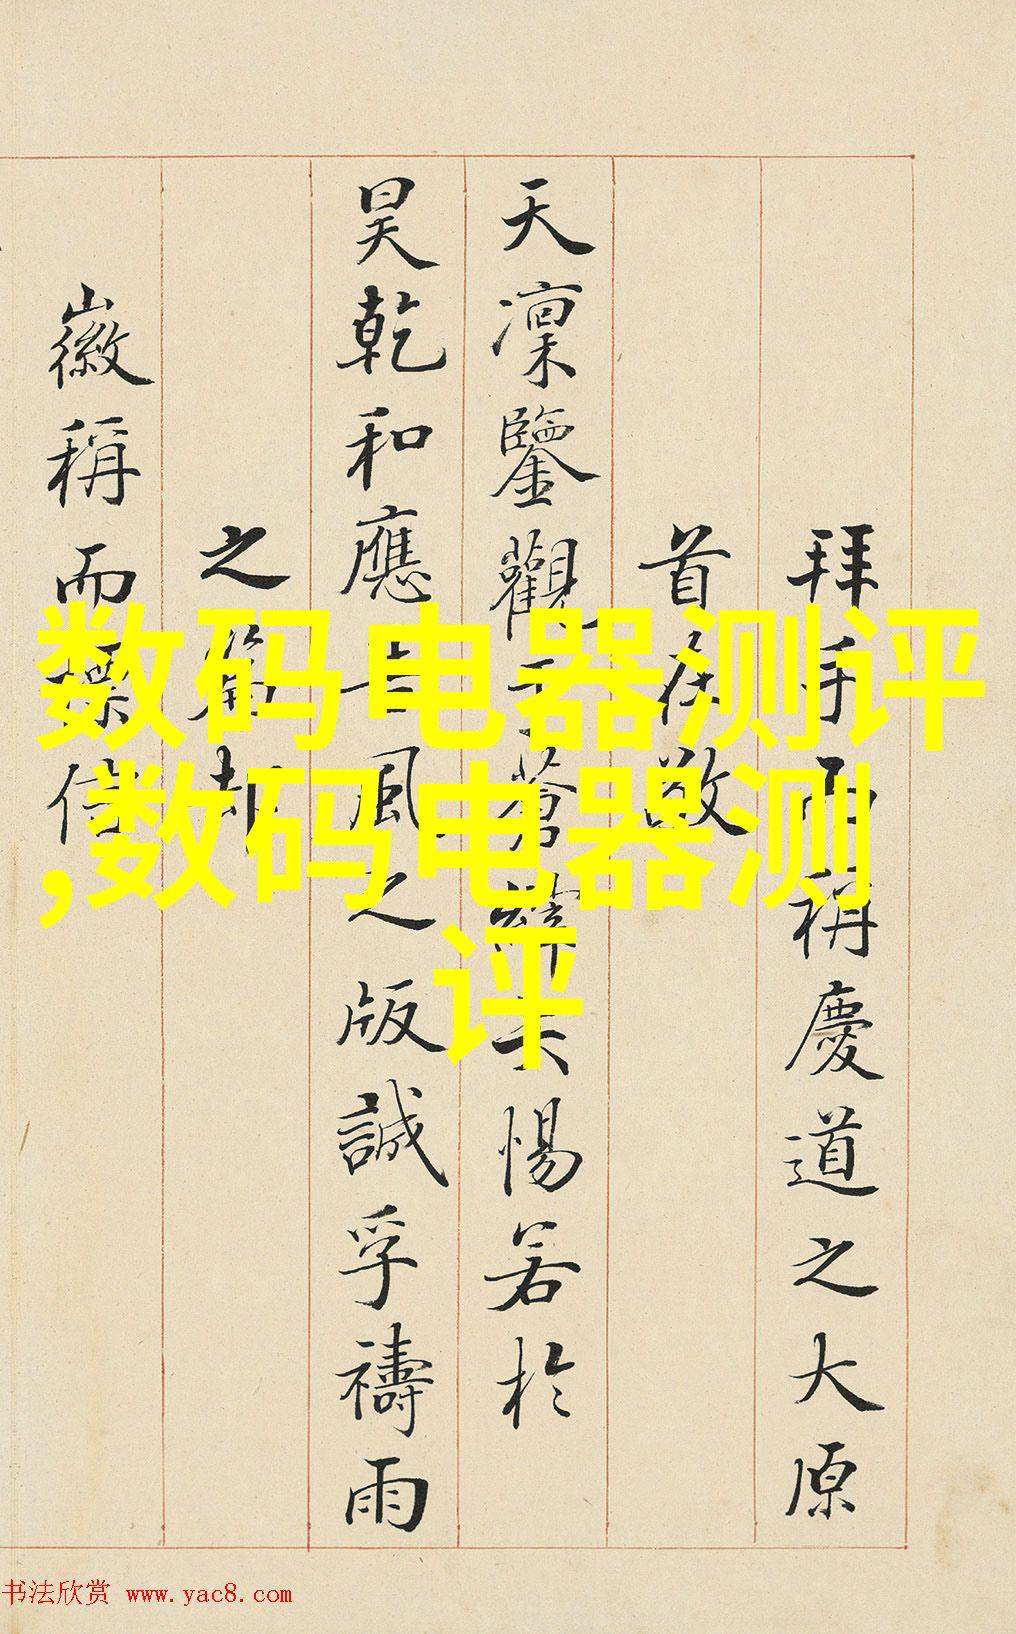 拜手而稱慶道之大原
首敬
天凜鑒觀蒼惕若於
昊乾和應風之版誠孚禱雨
之篇
徽稱而
数码电器测评
,数码电器测
评
书法欣赏 www.yac8.com